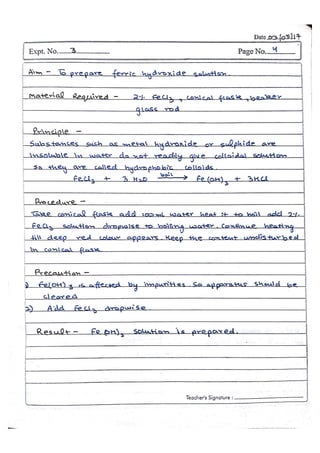 Date 03/03/17
Expt. No. 3 Page No. 4
Aim - To prepare ferric hydroxide solution.
Material Required - 2% FeCl3, conical flask, beaker
glass rod
Principle -
Substances such as metal hydroxide or sulphide are
insoluble in water do not readily give colloidal solution
so they are called hydrophobic colloids.
FeCl3 + 3 H2O boil → Fe(OH)3 + 3HCl
Procedure -
Take conical flask add 100ml water heat it to boil add 2%
FeCl3 solution dropwise to boiling water. Continue heating
till deep red colour appears. Keep the content undisturbed
in conical flask
Precaution -
1) Fe(OH)3 is affected by impurities so apparatus should be
cleared
2) Add FeCl3 dropwise.
Result - Fe OH)3 solution is prepared.
Teacher's Signature :